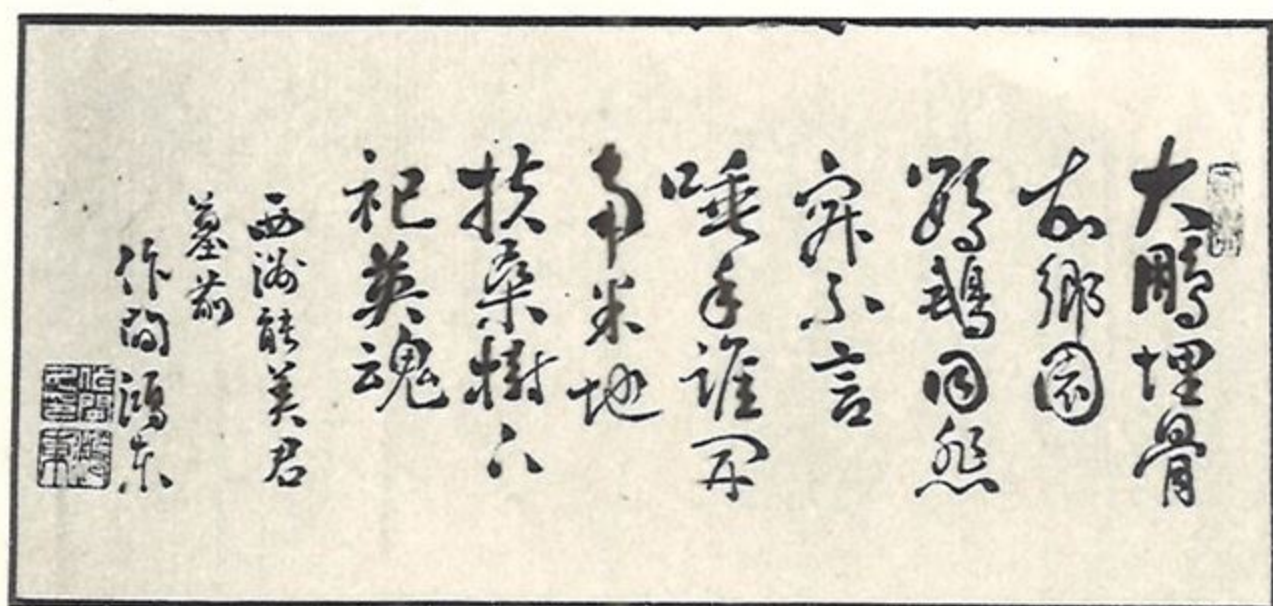 大鵬埋骨
故郷園
鵝同悲
寂不言
唾手誰開
南米地
扶桑樹下
祀英魂
西洲能美君
墓前
作間鴻東